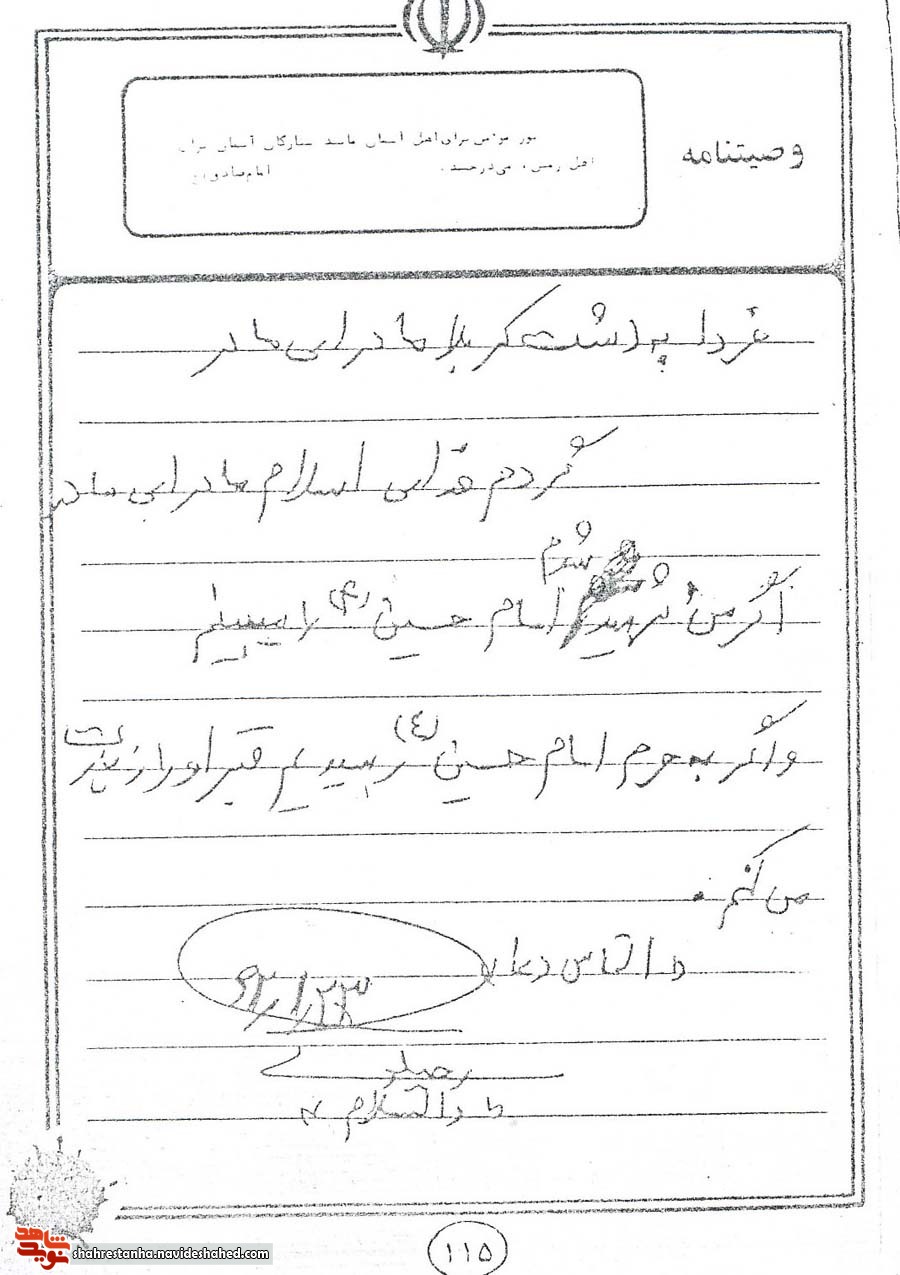 وصیتنامه
نور مؤمن برای اهل آسمان مانند ستارگان آسمان برای
اهل زمین، می‌درخشد. امام‌صادق(ع)
فردا به دشت کربلا مادرابی مادر
گردم فدایی اسلام مادرابی مادر
شوم
اگر من شهید امام حسین (ع) را میبینم
و اگر به حرم امام حسین (ع) رسیدیم قبر او را زیارت
می کنم.
التماس دعا
والسلام
۱۱۵
شاهد
نوید
shahrestanha.navideshahed.com